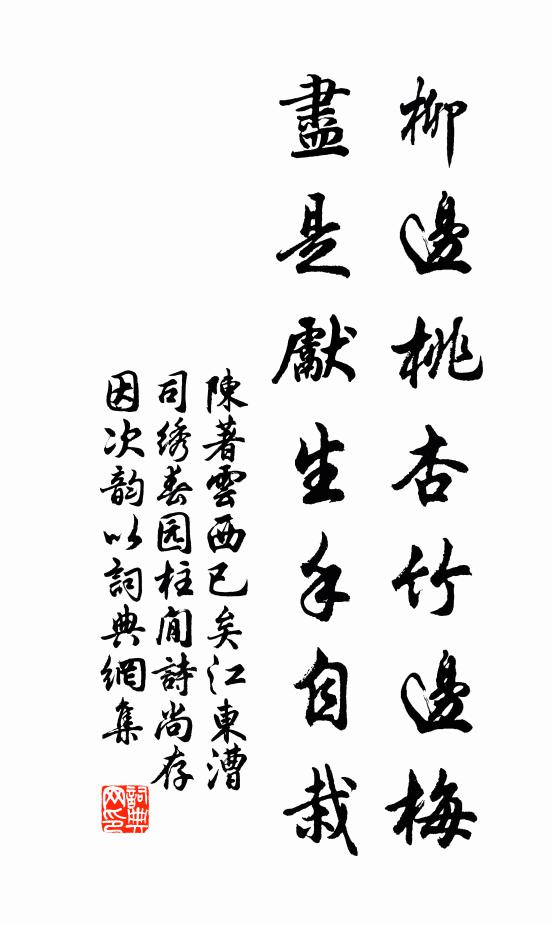 柳邊桃杏竹邊梅
盡是獻生手自栽
陳著雲西已矣江東漕
司绣春园柱間詩尚存
因次韵以詞典網集
詞典网印